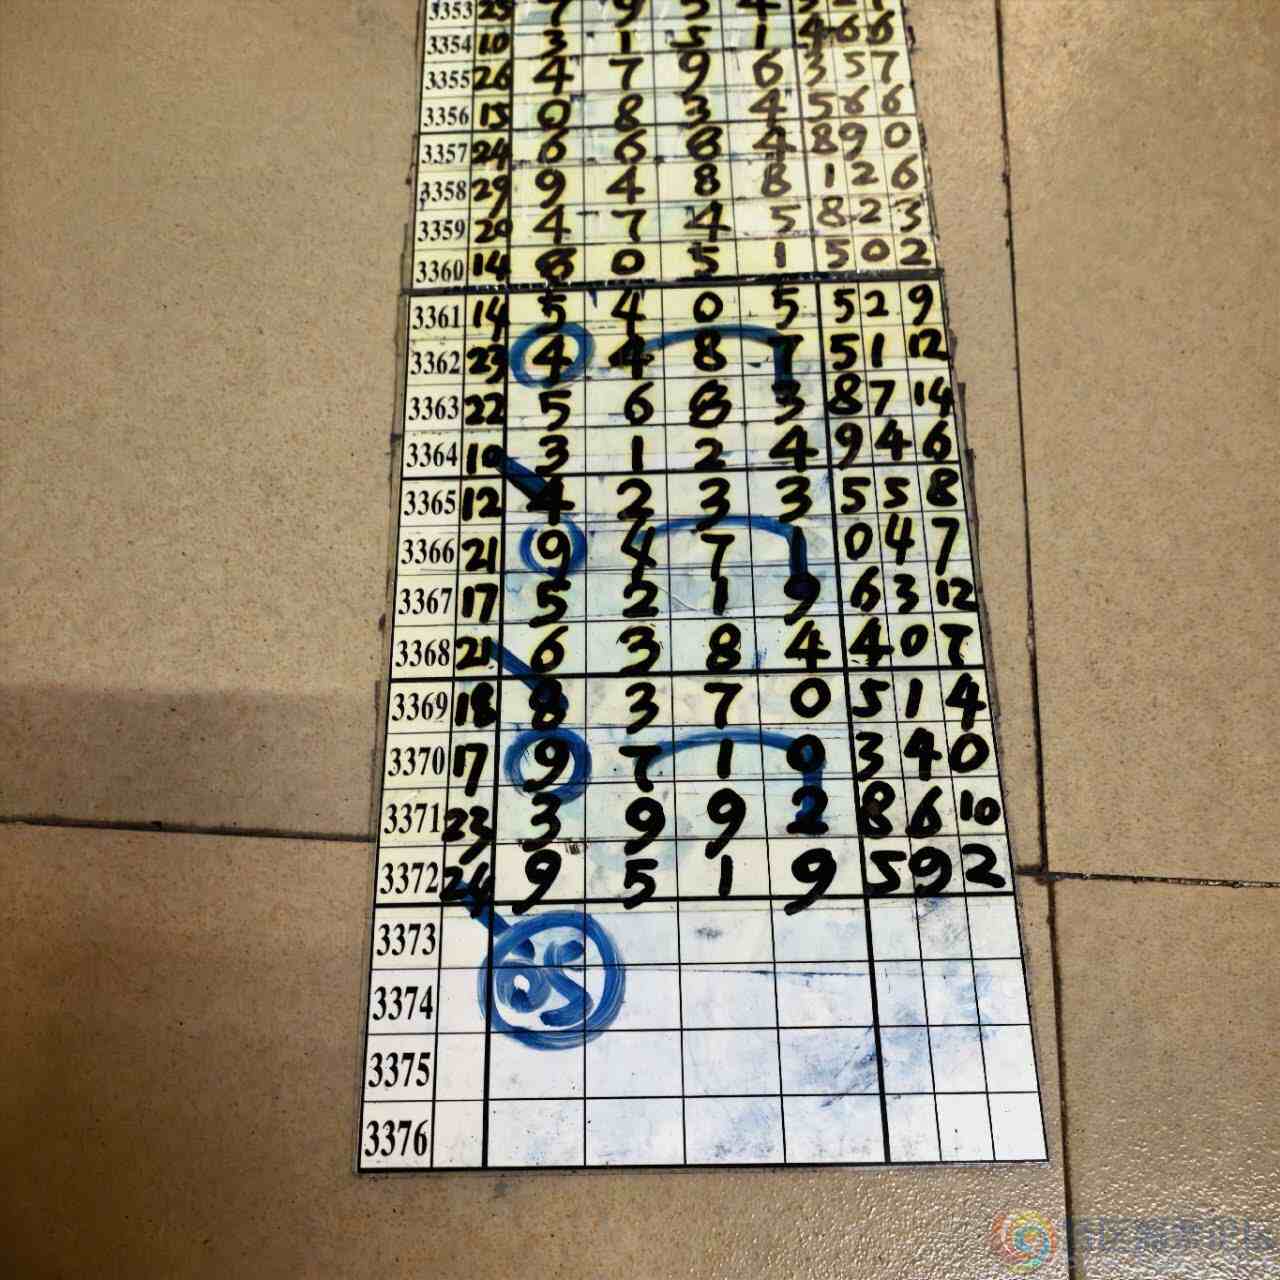 3353 25 7 9 5 4
3354 10 3 1 5 1 4 6 6
3355 26 4 7 9 6 3 5 7
3356 15 0 8 3 4 5 6 6
3357 24 6 6 8 4 8 9 0
3358 29 9 4 8 8 1 2 6
3359 20 4 7 4 5 8 2 3
3360 14 8 0 5 1 5 0 2
3361 14 5 4 0 5 5 2 9
3362 23 4 4 8 7 5 1 12
3363 22 5 6 8 3 8 7 14
3364 10 3 1 2 4 9 4 6
3365 12 4 2 3 3 5 5 8
3366 21 9 4 7 1 0 4 7
3367 17 5 2 1 9 6 3 12
3368 21 6 3 8 4 4 0 7
3369 18 8 3 7 0 5 1 4
3370 17 9 7 1 0 3 4 0
3371 23 3 9 9 2 8 6 10
3372 24 9 5 1 9 5 9 2
3373
3374
3375
3376